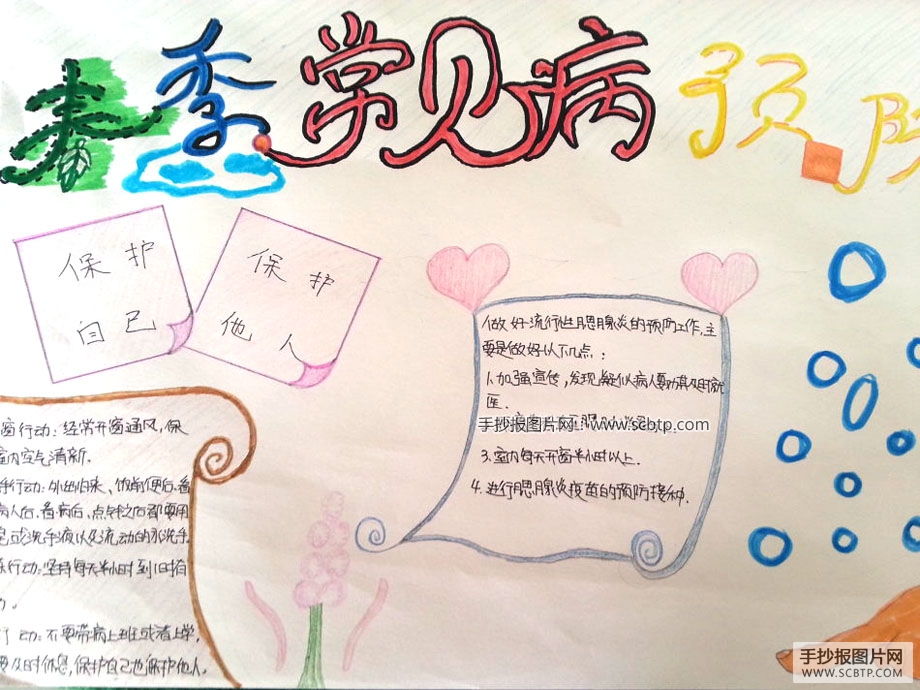 春季常见病预防
保护
自己
保护
他人
做好流行性腮腺炎的预防工作,主
要是做好以下几点:
1.加强宣传,发现疑似病人要劝其及时就
医.
手抄报图片网:www.scbtp.com
3.室内每天开窗半小时以上.
4.进行腮腺炎疫苗的预防接种.
窗行动:经常开窗通风,保
室内空气清新.
手行动:外出归来、饭前便后、看
病人后、看病后、点钞之后都要用
皂或洗手液以及流动的水洗手
行动:坚持每天半小时到1小时有
行动:不要带病上班或者上学,
要及时休息,保护自己也保护他人.
手抄报图片网
WWW.SCBTP.COM